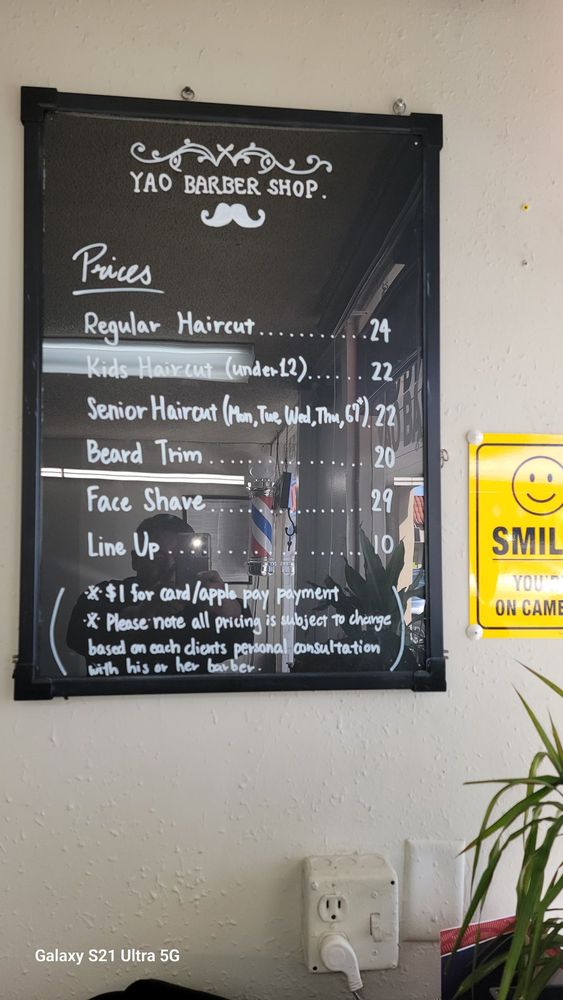 YAO BARBER SHOP.
Prices
Regular Haircut..........24
Kids Haircut (under 12)......22
Senior Haircut (Mon, Tue, Wed, Thu, 67+). 22
Beard Trim...............20
Face Shave...............29
Line Up..................10
※ $1 for card/apple pay payment
※ Please note all pricing is subject to change
based on each clients personal consultation
with his or her barber.
SMIL
YOU'R
ON CAME
Galaxy S21 Ultra 5G